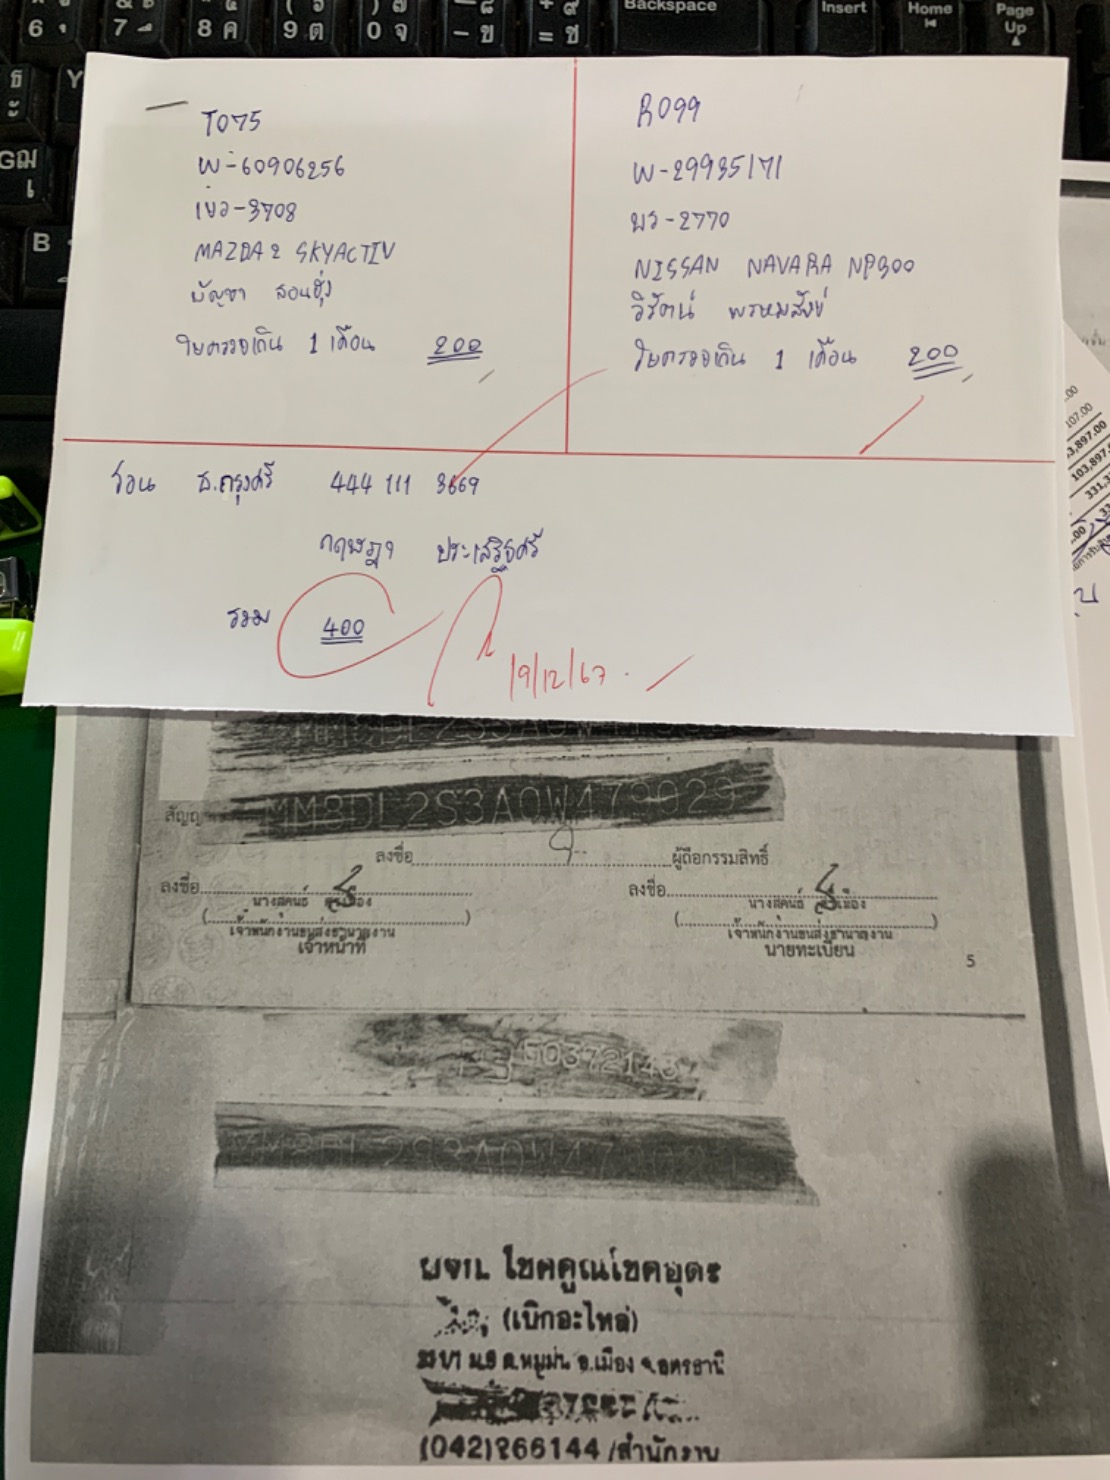 Backspace
Insert
Home
Page
Up
6
7
8 ค
9 ต
0 จ
- ข
= ช
Y
B
T075
พ-60906256
เขอ-3708
MAZDA 2 SKYACTIV
บัญชา สอนฮุ่ง
ใบตรวจเกิน 1 เดือน 200
R099
พ-29935171
บว-2770
NISSAN NAVARA NP300
วิรัตน์ พรหมสังข์
ใบตรวจเกิน 1 เดือน 200
โอน ธ.กรุงศรี 444 111 3669
กฤษฎา ประเสริฐศรี
รวม 400
19/12/67
107.00
3,897.00
103,897.
331,3
MM8DL2S3A0W479029
ลงชื่อ ผู้ถือกรรมสิทธิ์
ลงชื่อ
นางสุคนธ์
เจ้าพนักงานขนส่งชำนาญงาน
เจ้าหน้าที่
ลงชื่อ
นางสุคนธ์
เจ้าพนักงานขนส่งชำนาญงาน
นายทะเบียน
5
60372143
MM8DL2S3A0W479029
ผจก. โชคคูณโชคอุดร
(เบิกอะไหล่)
ต.หมูม่น อ.เมือง จ.อุดรธานี
(042)266144 /สำนักงาน